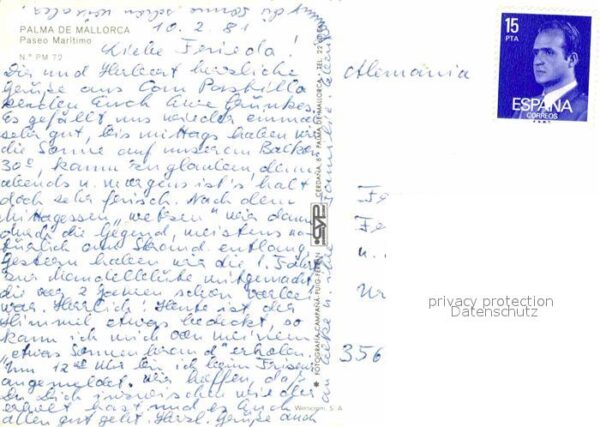 PALMA DE MALLORCA
Paseo Marítimo
N.º PM 72
10.2.81
Liebe Frieda!
Dir und Herbert herzliche
Grüße aus Com Pastilla
senden Euch Eure
Es gefällt uns wieder einmal
sehr gut, bis mittags haben wir
die Sonne auf unserem Balkon
30°, kaum zu glauben, denn
abends u. morgens ist's halt
doch sehr frisch. Nach dem
Mittagessen „wetzen" wir dann
durch die Gegend, meistens na-
türlich am Strand entlang.
Gestern haben wir die 1. Fahrt
zur Mandelblüte mitgemacht,
die vor 2 Jahren schon vorbei
war. Herrlich! Heute ist der
Himmel etwas bedeckt, so
kann ich mich von meinem
„etwas Sonnenbrand" erholen.
Um 12 Uhr bin ich beim Friseur
angemeldet. Wir hoffen, daß
Du Dich inzwischen wieder
erholt hast und es Euch
allen gut geht. Herzl. Grüße auch
an
FOTOGRAFIA CAMPAÑA PUIG FERRAN
CYP
CERDAÑA, 8 - PALMA DE MALLORCA - TEL. 22
Alemania
15
PTA
ESPAÑA
CORREOS
u.
356
privacy protection
Datenschutz